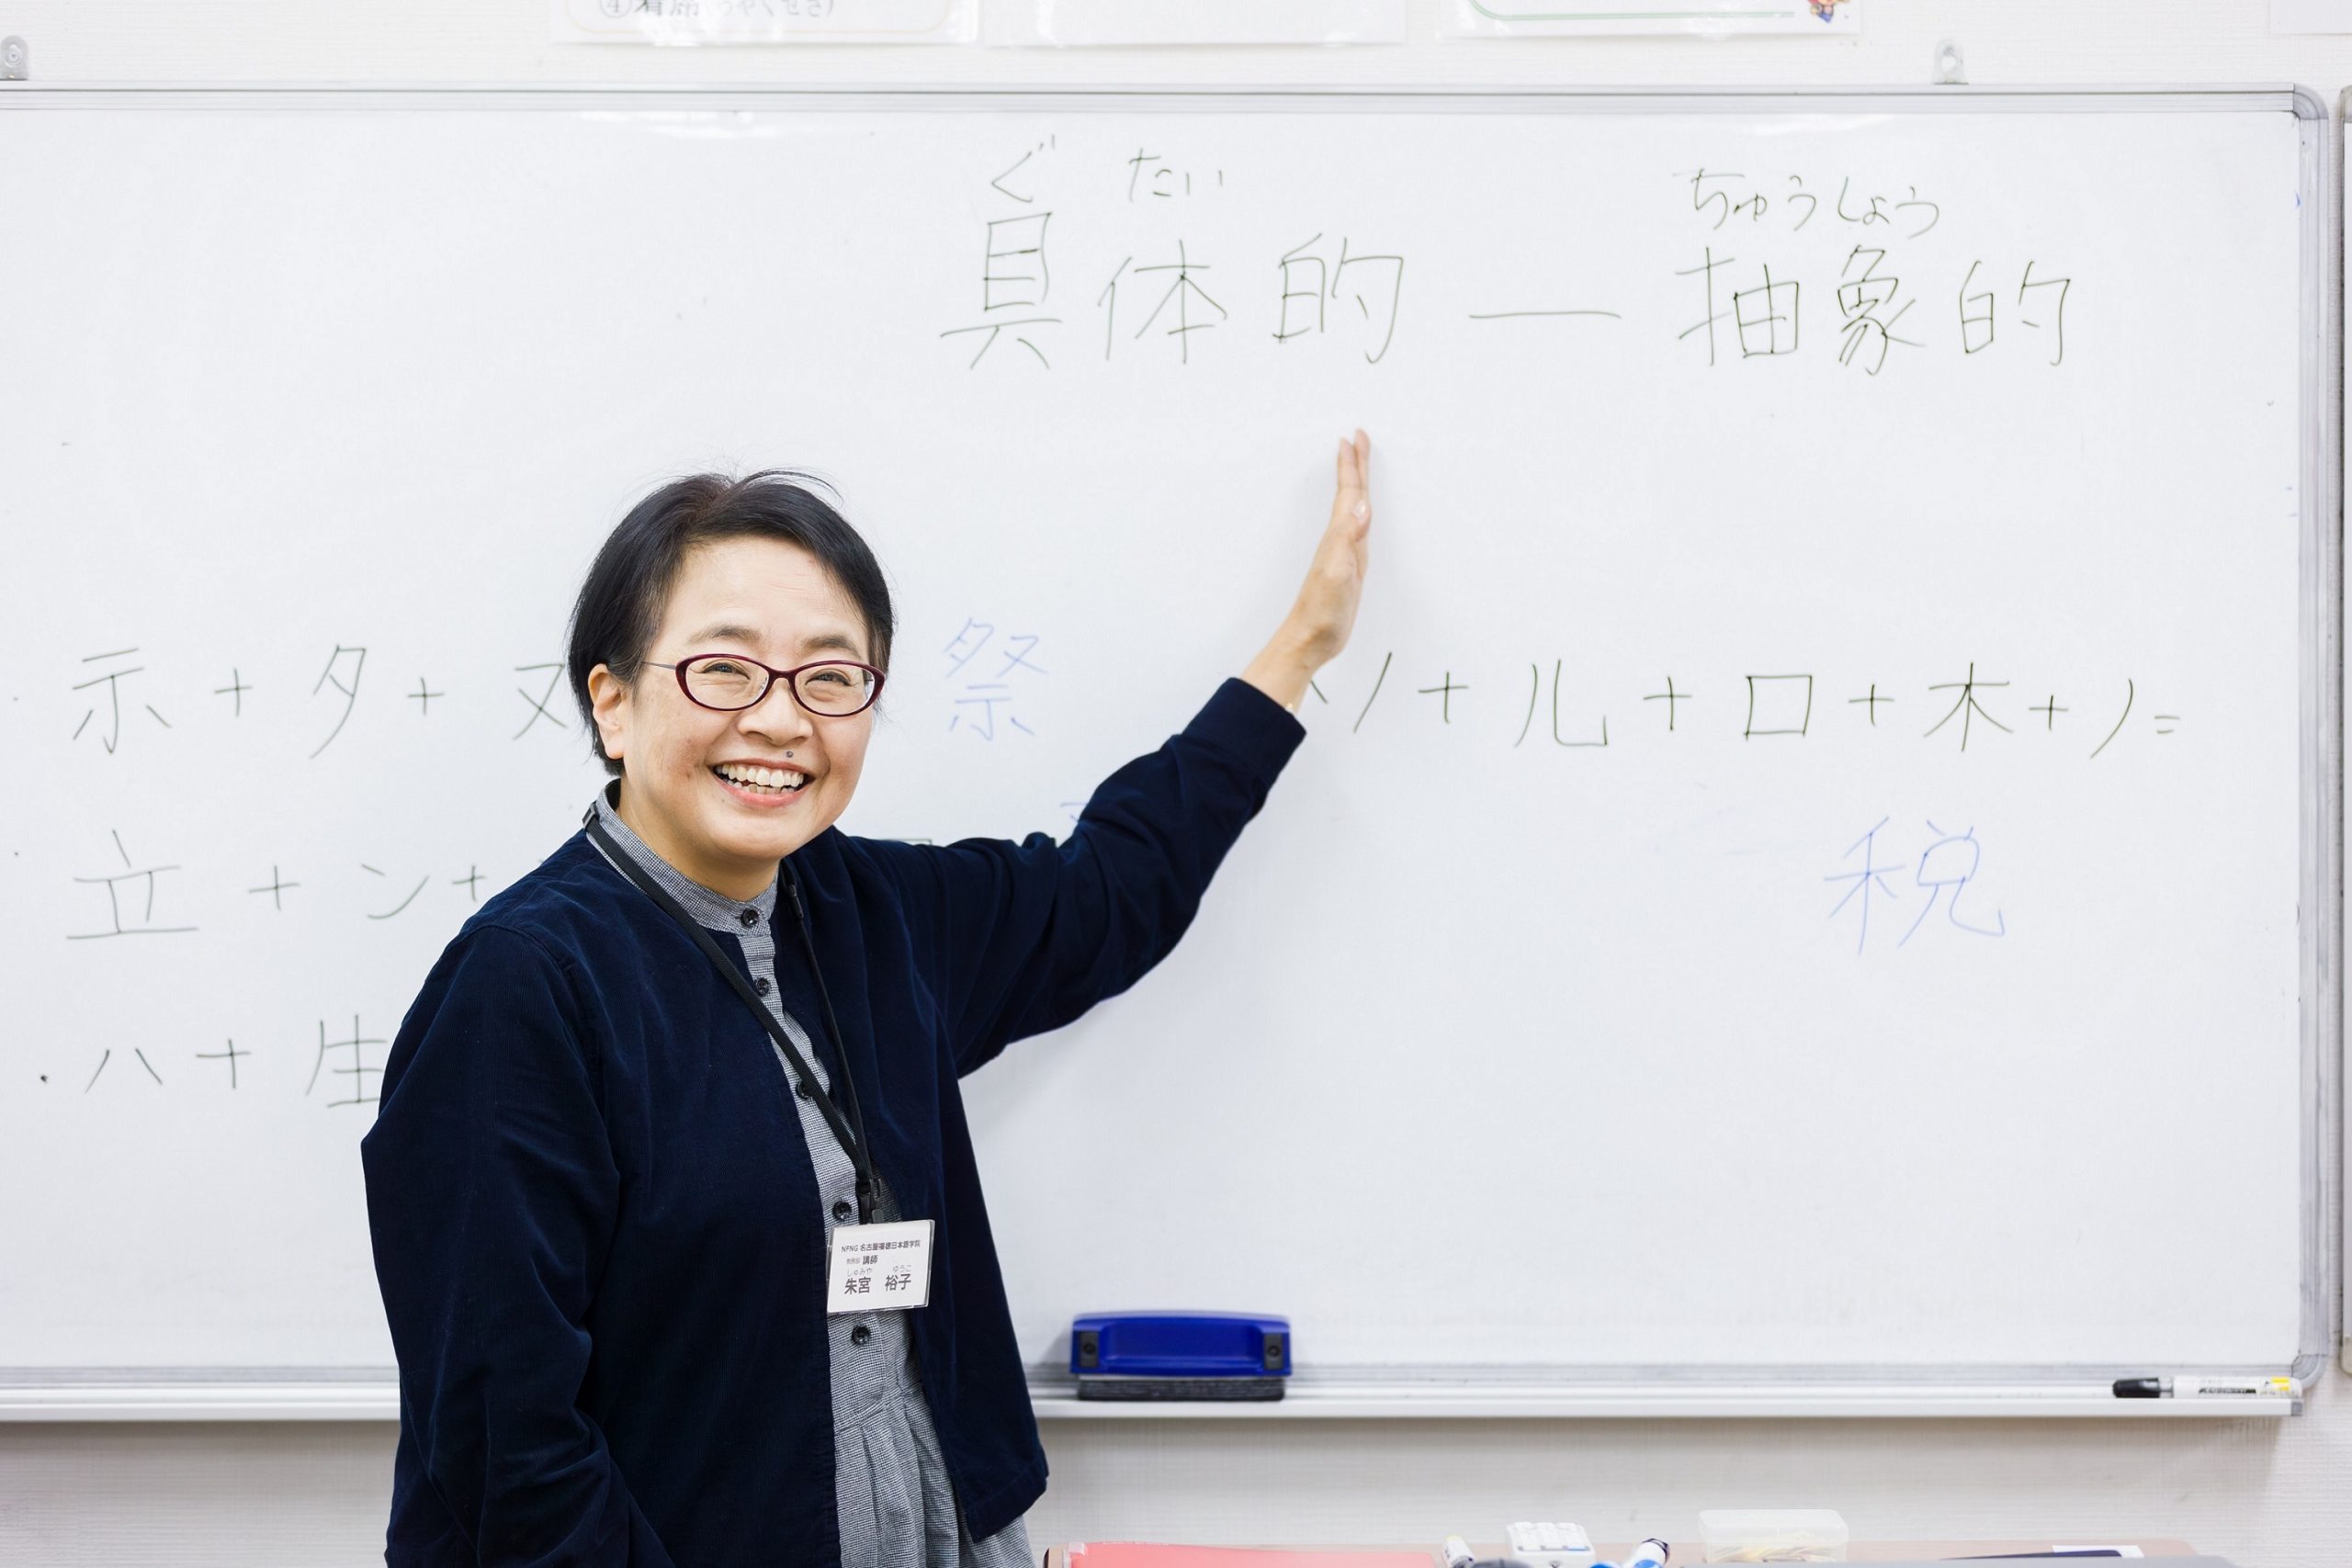 ④着席(ちゃくせき)
ぐ たい ちゅうしょう
具体的 — 抽象的
示 + 夕 + ヌ
祭
ソ + 儿 + 口 + 木 + ノ =
税
立 + ン +
・ハ + 生
NPNG 名古屋福徳日本語学院
講師
しゅみや ゆうこ
朱宮 裕子